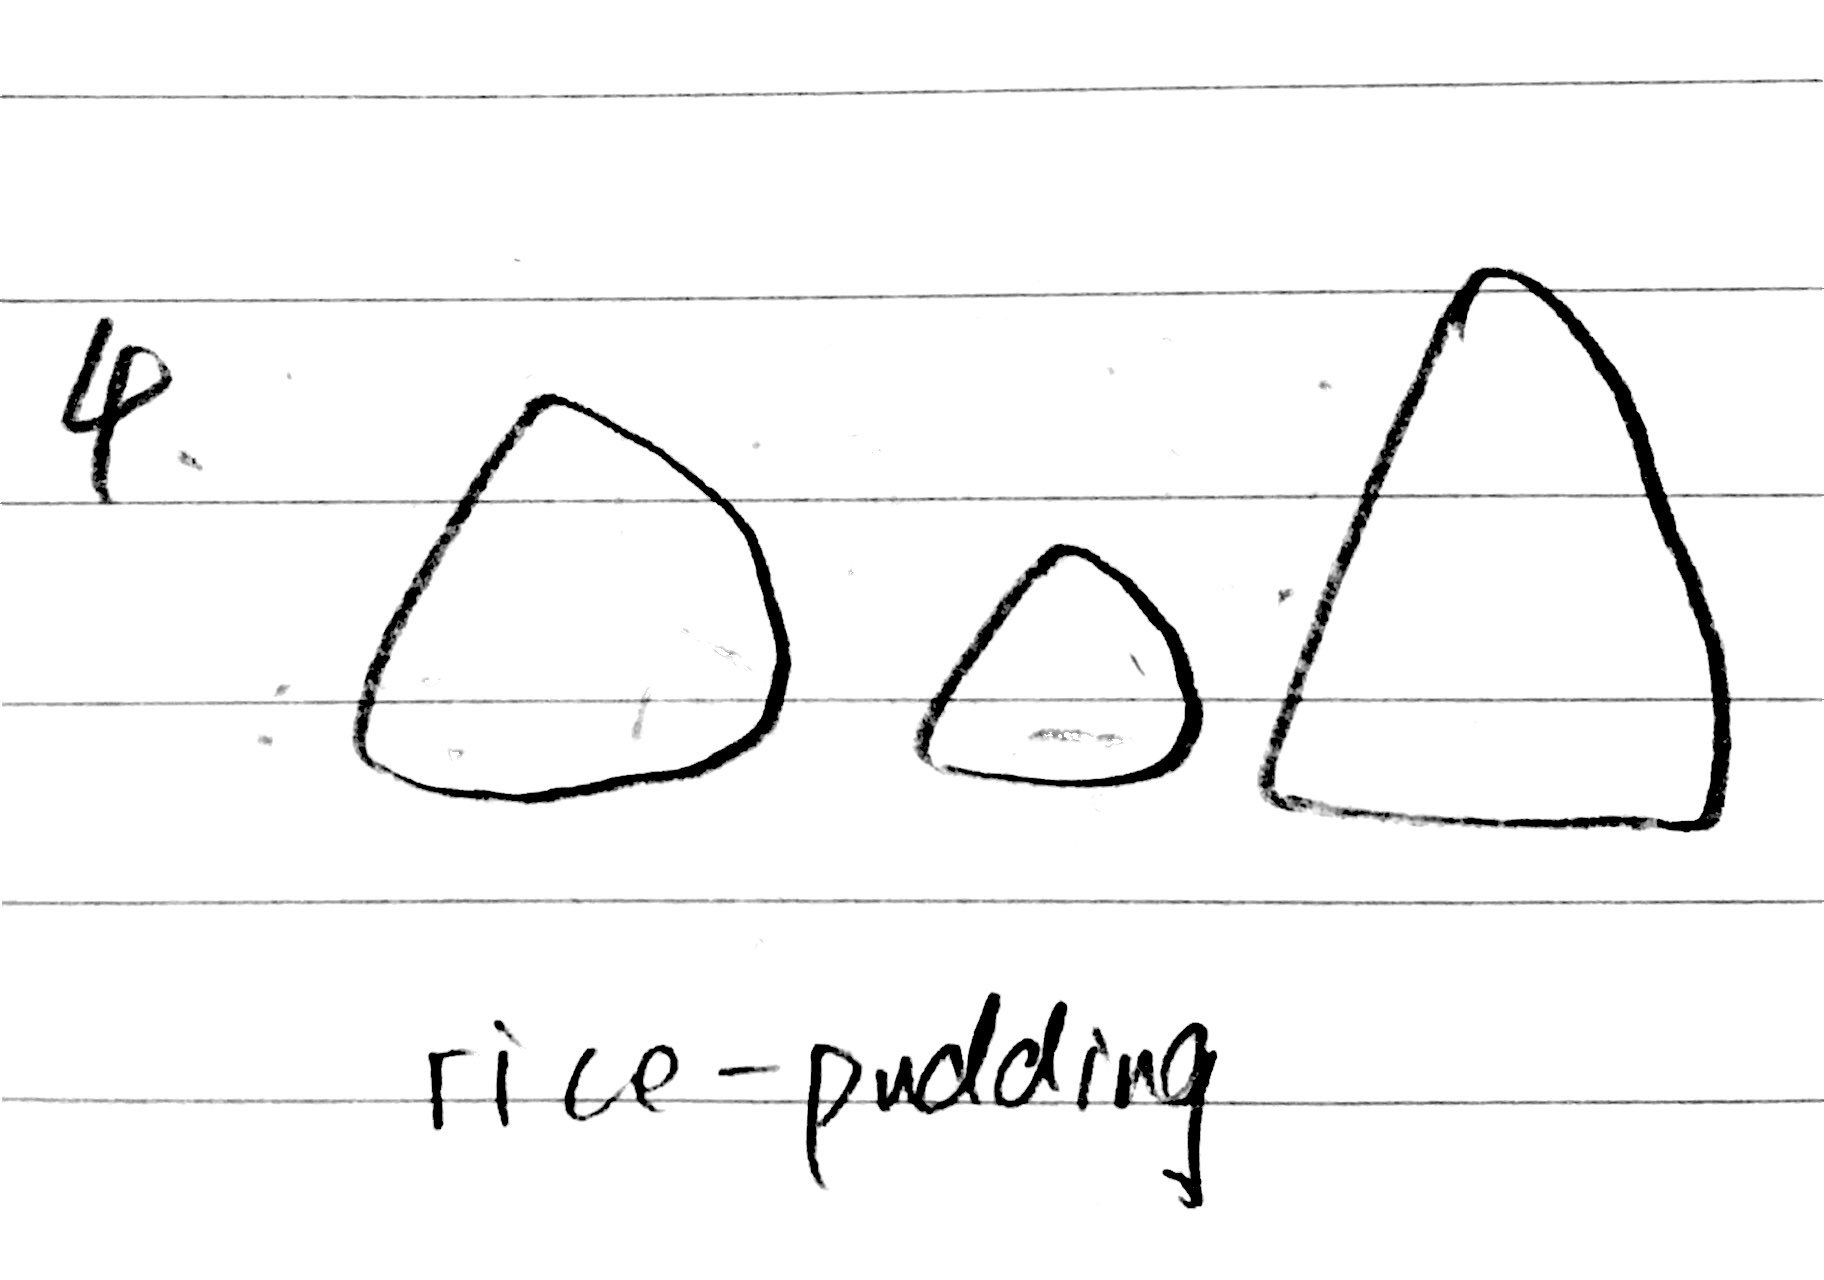 4.
rice-pudding